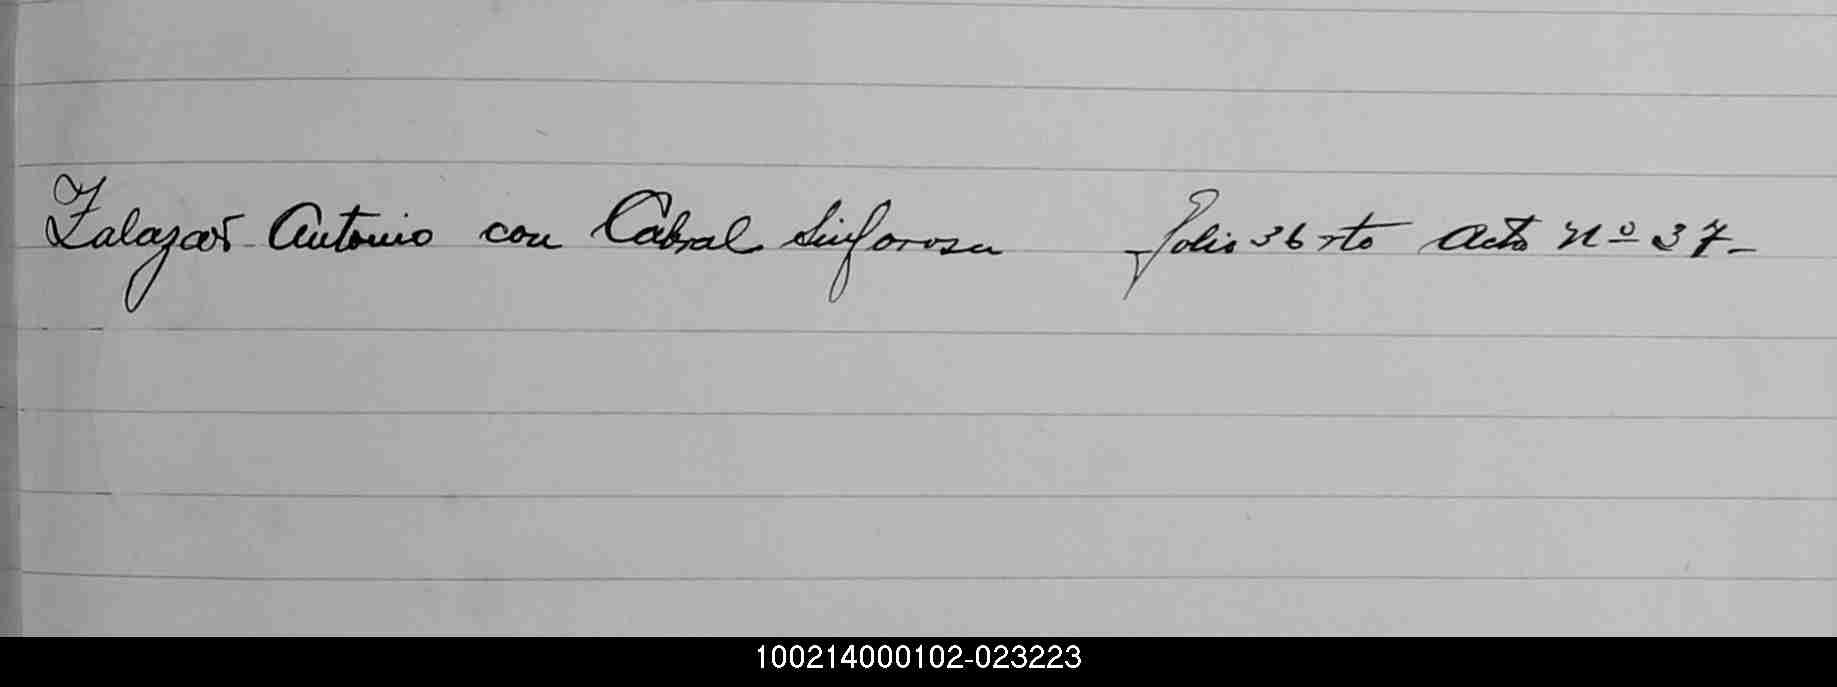 Zalazar Antonio con Cabral Sinforosa folio 36 vto Acta Nº 37-
100214000102-023223